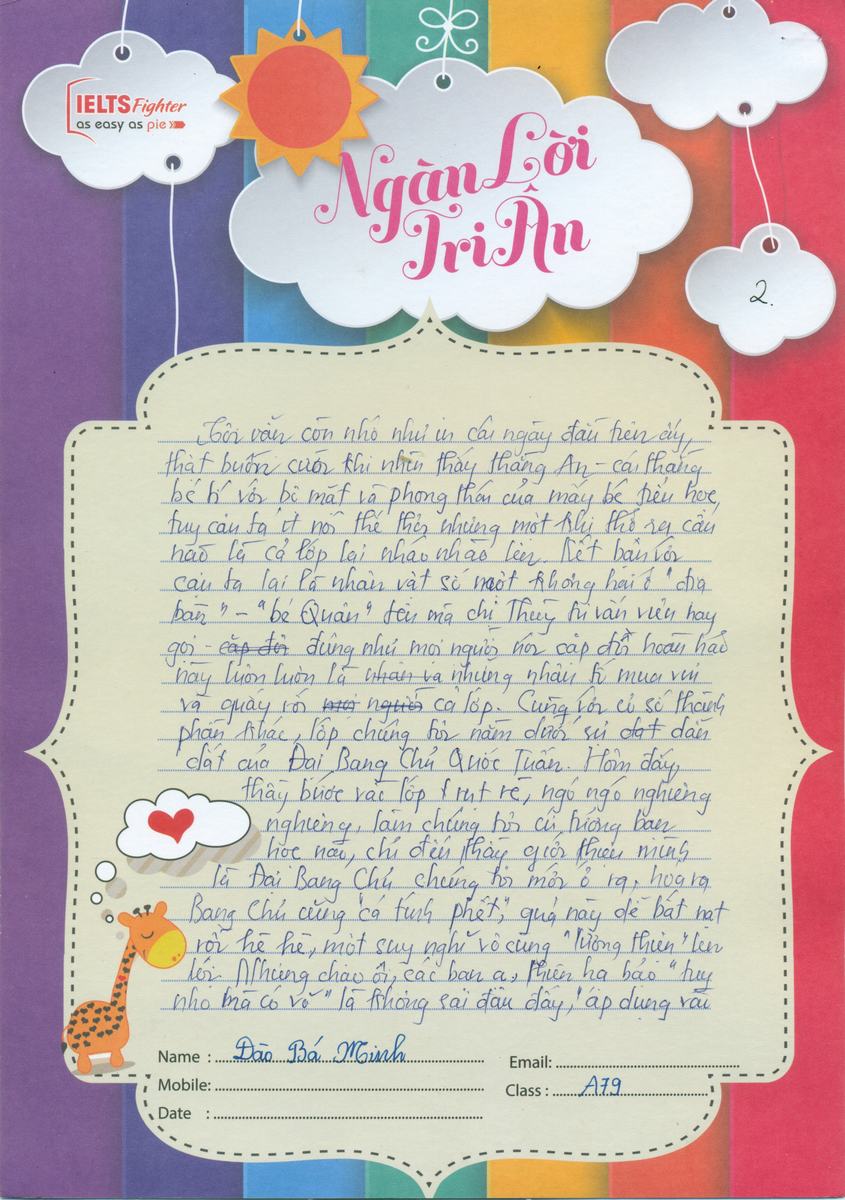 IELTS Fighter
as easy as pie
Ngàn Lời
Tri Ân
2.
Tôi vẫn còn nhớ như in cái ngày đầu tiên ấy,
thật buồn cười khi nhìn thấy thằng An - cái thằng
bé tí với bộ mặt và phong thái của mấy bé tiểu học,
tuy cậu ta ít nói thế thôi nhưng một khi thở ra câu
nào là cả lớp lại nháo nhào lên. Kết bạn với
cậu ta lại là nhân vật số một không hai ở "địa
bàn" - "bé Quân" tên mà chị Thủy tư vấn viên hay
gọi - cặp đôi đúng như mọi người nói cặp đôi hoàn hảo
này luôn luôn là nhân vậ những nhân tố mua vui
và quấy rối mọi người cả lớp. Cùng với cỏ số thành
phần khác, lớp chúng tôi nằm dưới sự dạt dẫn
dắt của Đại Bang Chủ Quốc Tuấn. Hôm đấy,
thầy bước vào lớp rụt rè, ngó ngó nghiêng
nghiêng, làm chúng tôi cứ tưởng bạn
học nào, chỉ đến thầy giới thiệu mình
là Đại Bang Chủ chúng tôi mới ồ ra, hóa ra
Bang Chủ cũng "cá tính phết", quả này dễ bắt nạt
rồi hê hê, một suy nghĩ vô cùng "lương thiện" lên
lỏi. Nhưng chao ôi, các bạn ạ, thiên hạ bảo "tuy
nhỏ mà có võ" là không sai đâu đấy, áp dụng vào
Name : Đào Bá Minh
Email:
Mobile:
Class : A79
Date :